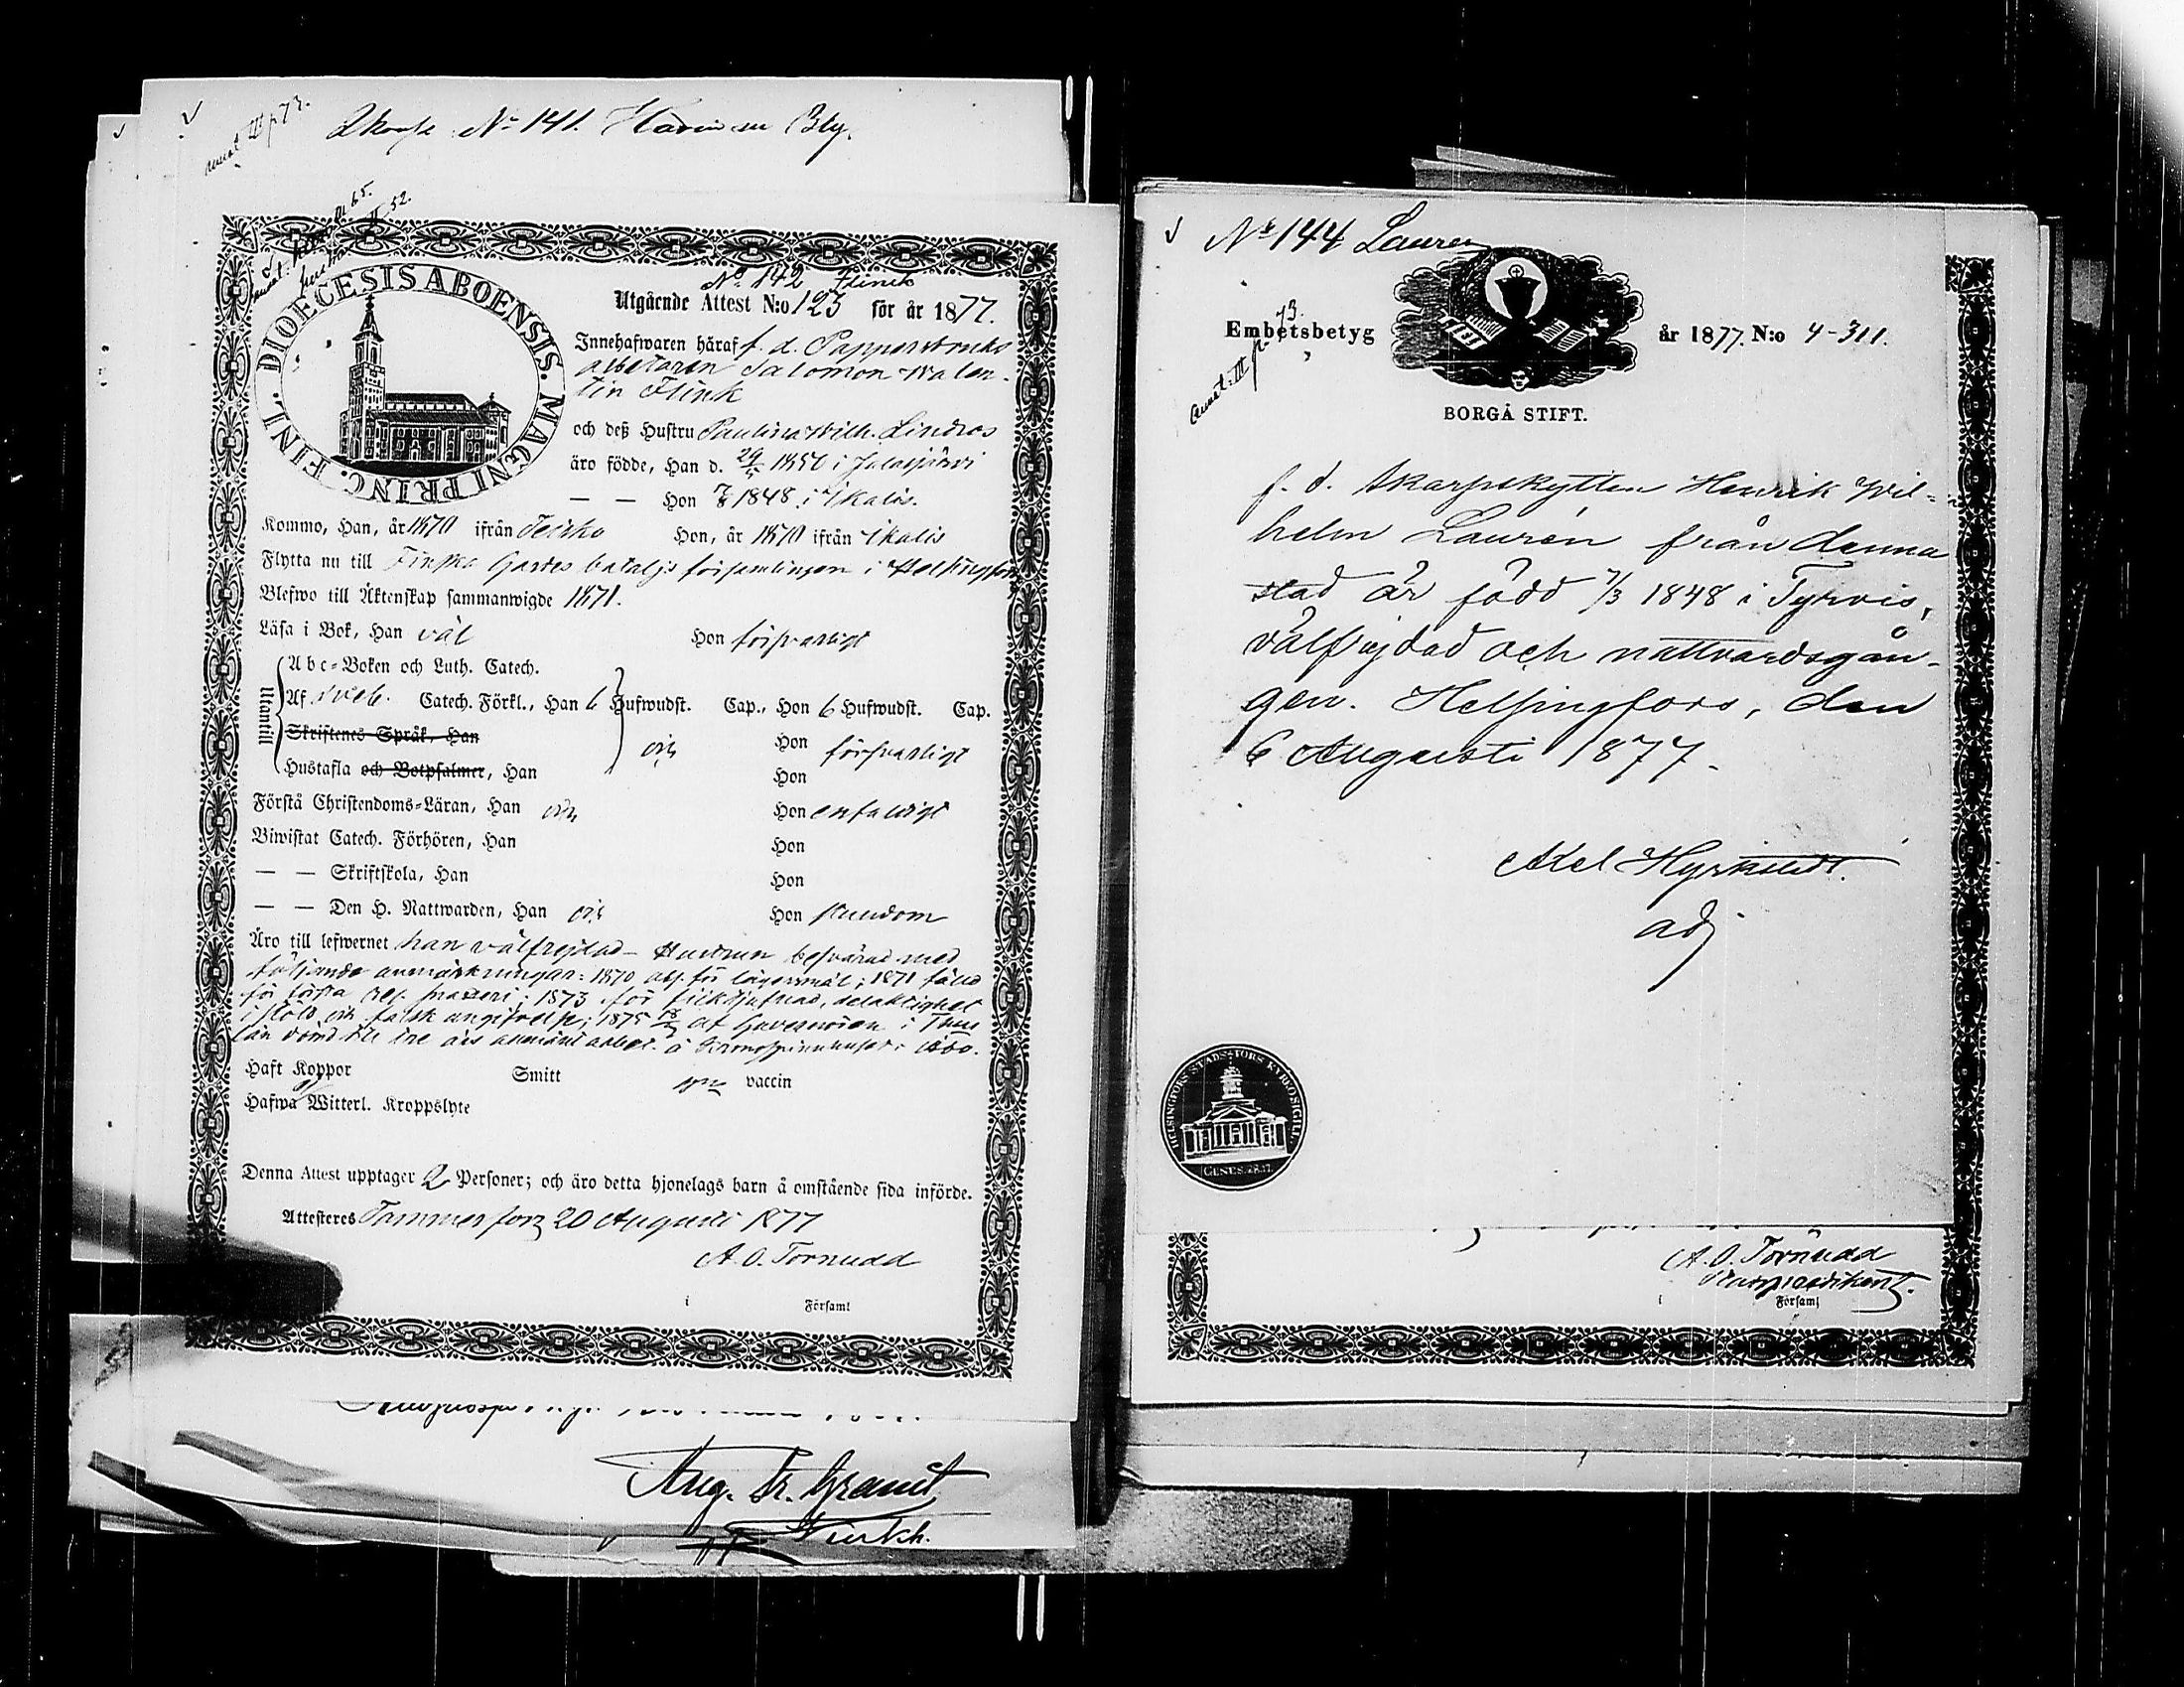 N:o 141.
N:o 142 Flinck
DIOECESIS ABOENSIS. MAGNI PRINC. FINL.
Utgående Attest N:o 123 för år 1877.
Innehafwaren häraf f. d. Pappersbruks
arbetaren Salomon Walen-
tin Flink
och deß Hustru Paulina Wilh. Lindros
äro födde, Han d. 1850 i Jalasjärvi
— — Hon 1848 i Ikalis.
Kommo, Han, år 1870 ifrån Teisko Hon, år 1870 ifrån Ikalis
Flytta nu till Finska Gardes bataljs församlingen i Helsingfors
Blefwo till Äktenskap sammanwigde 1871.
Läsa i Bok, Han väl Hon försvarligt
Utantill
Abc-Boken och Luth. Catech.
Af Sveb. Catech. Förkl., Han 6 Hufwudst. Cap., Hon 6 Hufwudst. Cap.
Skriftenes Språk, Han Hon försvarligt
Hustafla och Botpsalmer, Han Hon
Förstå Christendoms-Läran, Han Hon enfaldigt
Biwistat Catech. Förhören, Han Hon
— — Skriftskola, Han Hon
— — Den H. Nattwarden, Han Hon stundom
Äro till lefwernet han välfrejdad – Hustrun besvärad med
följande anmärkningar: 1870 abs. för lägersmål; 1871 fälld
för första snatteri; 1873 för fickstjufnad, delaktighet
i stöld och falsk angifvelse; 1875 af Guvernören i
län dömd till tre års allmänt arbete å Spinnhuset
Haft Koppor Smitt vaccin
Hafwa Witterl. Kroppslyte
Denna Attest upptager 2 Personer; och äro detta hjonelags barn å omstående sida införde.
Attesteres Tammerfors 20 Augusti 1877
A. O. Törnudd
i Församl
Aug. Fr. Granit
Kyrkh.
N:o 144 Lauren
Embetsbetyg år 1877. N:o 4-311.
BORGÅ STIFT.
f. d. Skarpskytten Henrik Wil-
helm Laurén från denna
stad är född 7/3 1848 i Tyrvis,
välfrejdad och nattvardsgån-
gen. Helsingfors, den
6 Augusti 1877.
Axel Hyrkstedt.
adj
HELSINGFORS STADS STORKYRKO SIGILL.
GENES. 28. 17.
A. O. Törnudd
i Församl